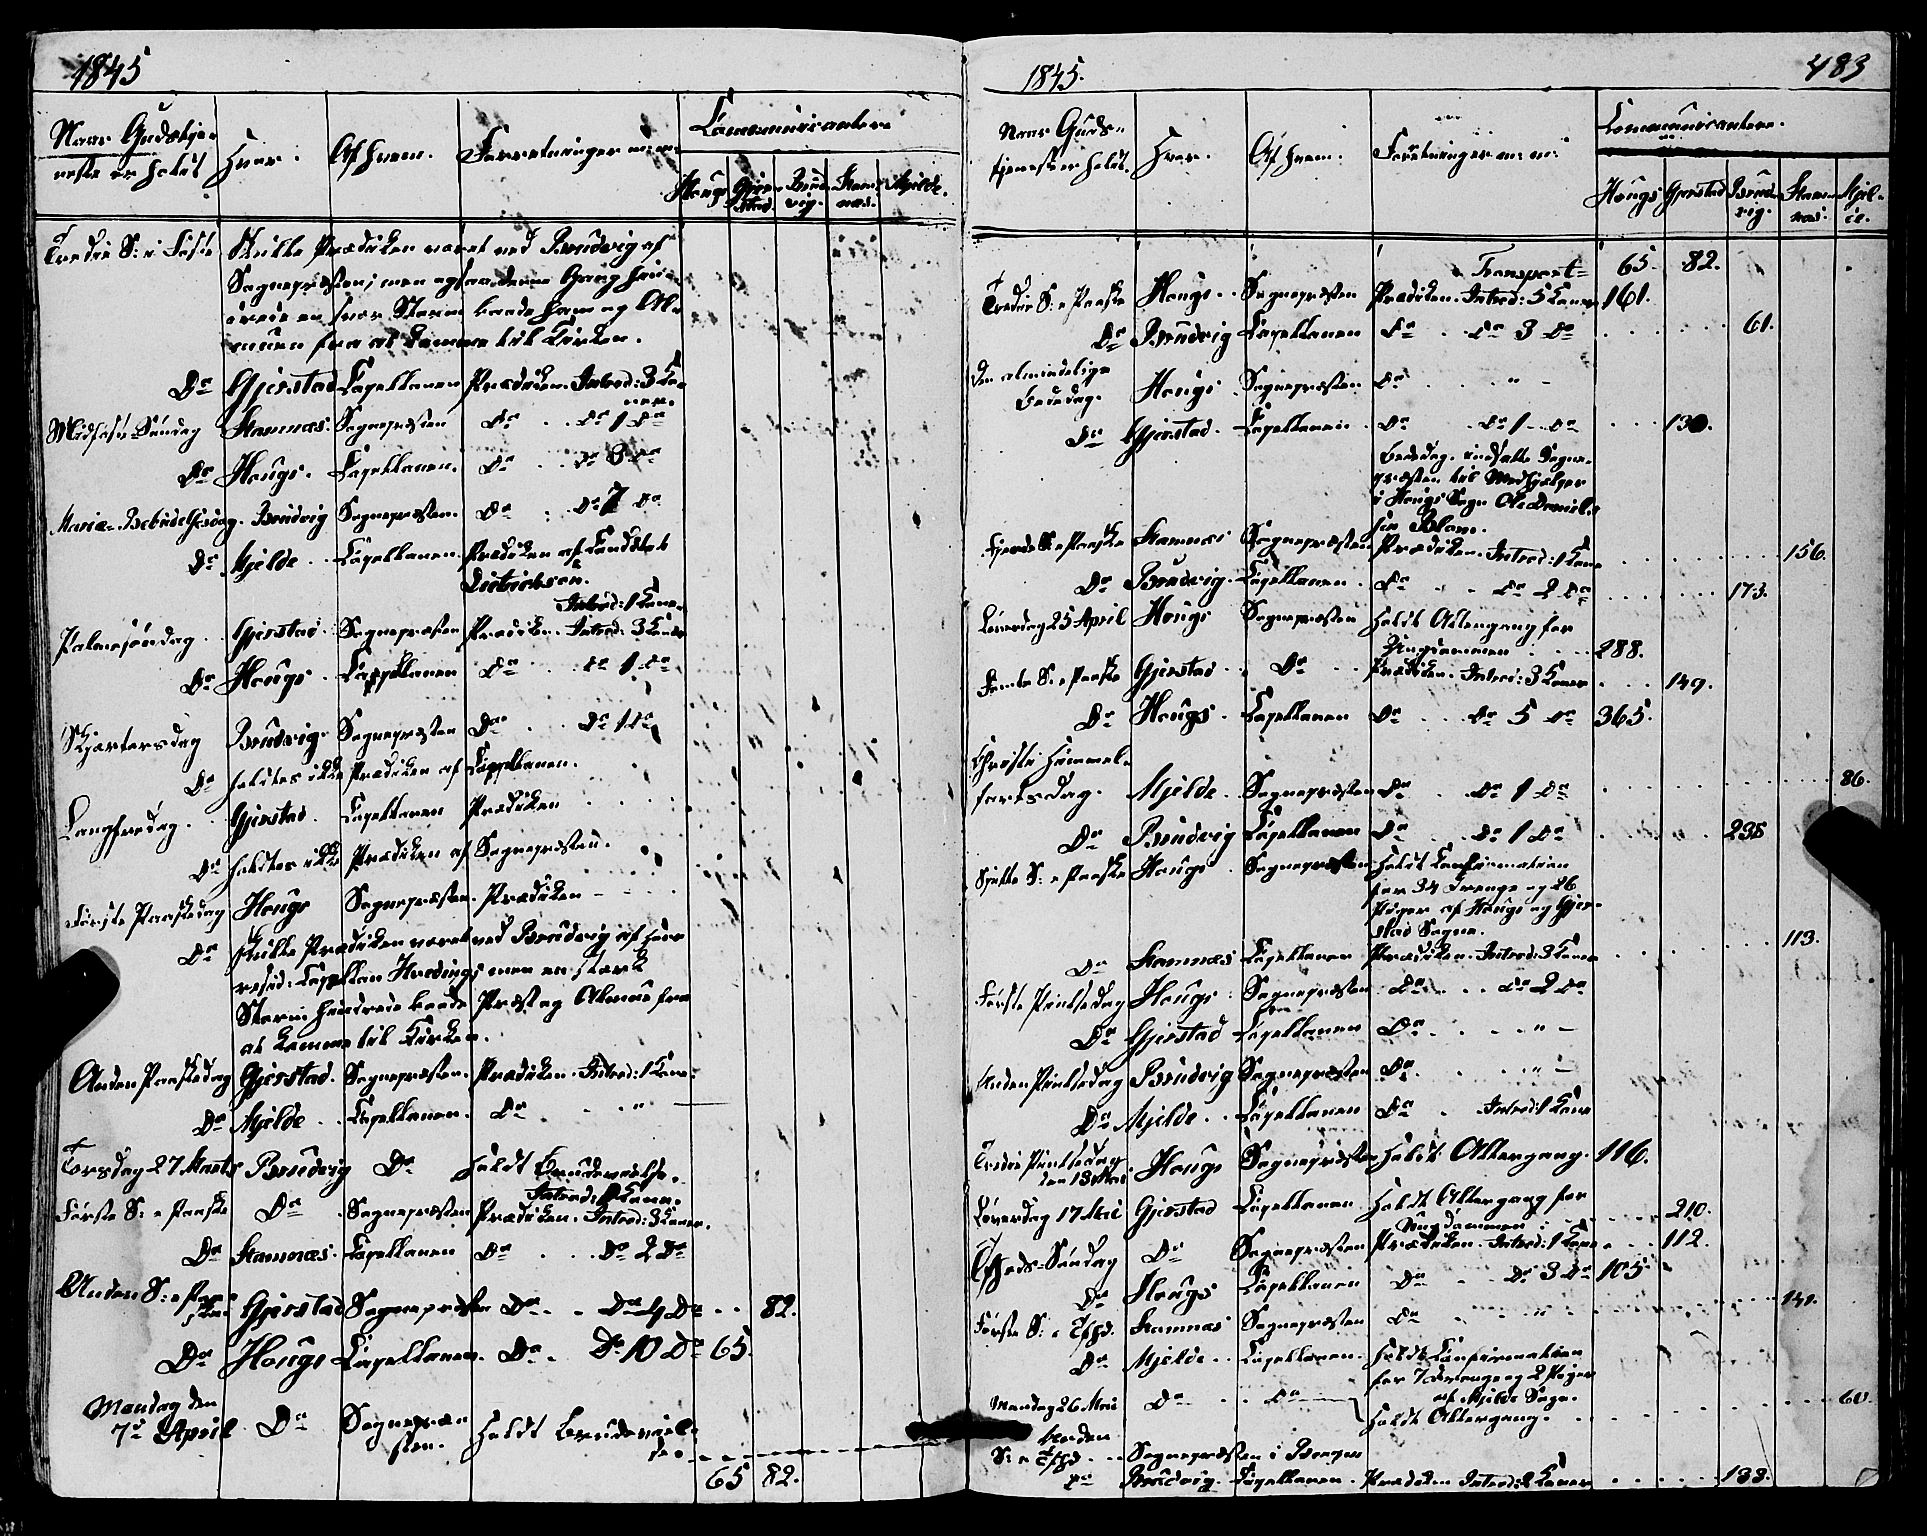 1845
Naar Gudstje-
neste er holdt
Hvor.
Af hvem.
Forretninger m: m:
Communicantere
Hougs
Gjer-
stad.
Brud-
vig.
Stam-
næs.
Mjelde.
Tredie S: i Faste Skulde Prædiken været ved Brudvig af
Sognepræsten; men ogsaa denne Gang hin-
drede en svær Storm baade ham og Al-
muen fra at komme til Kirken.
Do Gjerstad Capellanen Prædiken. Introd: 3 Ko-
ner.
Midfaste Søndag Stamnæs. Sognepræsten Do Do 1 Do
Do Hougs. Capellanen. Do Do 8 Do
Mariæ Bebudelsesdag. Brudvig Sognepræsten. Do Do 7 Do
Do Mjelde Capellanen. Prædiken af Candidat
Dietrichson.
Introd: 1 Kone.
Palmesøndag Gjerstad. Sognepræsten Prædiken. Introd: 3 Koner
Do Hougs Capellanen Do Do 1 Do
Skjærtorsdag Brudvig. Sognepræsten Do Do 1 Do
Do holdtes ikke Prædiken af Capellanen.
Langfredag. Gjerstad. Capellanen Prædiken
Do holdtes ikke Prædiken af Sognepræsten.
Første Paaskedag Hougs Sognepræsten. Prædiken
Do skulde Prædiken været ved Brudvig af Herr
resid: Capellan Hvoding; men en stærk
Storm hindrede baade Præst og Almue fra
at komme til Kirken.
Anden Paaskedag Gjerstad. Sognepræsten. Prædiken. Introd: 1 Kone
Do Mjelde Capellanen. Do "
Torsdag 27 Marts Brudvig Do Holdt Brudevielse.
Introd: 1 Kone.
Første S: e Paaske Do Sognepræsten Prædiken. Introd: 3 Koner.
Do Stamnæs. Capellanen Do Do 2 Do
Anden S: e Paa-
ske Gjerstad Sognepræsten Do Do 4 Do 82.
Do Hougs Capellanen. Do Do 10 Do 65.
Mandag den
7de April Do Sognepræ-
sten. Holdt Brudeviel-
se.
65 82.
1845.
483
Naar Guds-
tjeneste er holdt.
Hvor.
Af hvem.
Forretninger m: m:
Communicantere.
Hougs
Gjerstad
Brud-
vig.
Stam-
næs.
Mjel-
de.
Transport= 65. 82.
Tredie S: e Paaske Hougs Sognepræsten Prædiken. Introd: 5 Koner 161.
Do Brudvig Capellanen Do Do 3 Do 61.
Den almindelige
Bededag. Hougs Sognepræsten Do "
Do Gjerstad Capellanen Do Do 1 Do 130.
Bededag indsatte Sogne-
præsten til Medhjelper
i Hougs Sogn Ole Daniel-
sen Blom.
Fjerde S: e Paaske Stamnæs Sognepræsten Prædiken. Introd: 1 Kone 156.
Do Brudvig. Capellanen Do Do 2 Do 173.
Løverdag 25 April Hougs Sognepræsten Holdt Altergang for
Ungdommen 288.
Femte S: e Paaske Gjerstad Do Prædiken. Introd: 3 Koner 149.
Do Hougs. Capellanen Do Do 5 Do 365.
Christi Himmel-
fartsdag. Mjelde Sognepræsten Do Do 1 Do 86.
Do Brudvig Capellanen Do Do 1 Do 235
Sjette S: e Paaske Hougs Sognepræsten Holdt Confirmation
for 34 Drenge og 26
Piger af Hougs og Gjer-
stad Sogne.
Do Stamnæs Capellanen Prædiken. Introd: 3 Koner 113.
Første Pintsedag Hougs Sognepræsten Do Do 2 Do
Do Gjerstad Capellanen Do "
Anden Pintsedag Brudvig Sognepræsten Do "
Do Mjelde Capellanen Do Introd: 1 Kone
Tredie Pintsedag
den 13 Mai Hougs Sognepræsten Holdt Altergang. 116.
Løverdag 17 Mai Gjerstad Capellanen Holdt Altergang for
Ungdommen 210.
Trfheds-Søndag Do Sognepræsten Prædiken. Introd: 1 Kone 112.
Do Hougs Capellanen Do Do 3 Do 105.
Første S: e Trfhd. Stamnæs Sognepræsten Do " 141.
Do Mjelde Capellanen. Holdt Confirmation
for 7 Drenge og 2 Piger
af Mjelde Sogn.
Mandag 26 Mai Do Do Holdt Altergang. 60.
Anden
S: e Trfhd. Sognepræsten i Bergen
Do Brudvig. Capellanen. Prædiken Introd: 2 Koner 133.